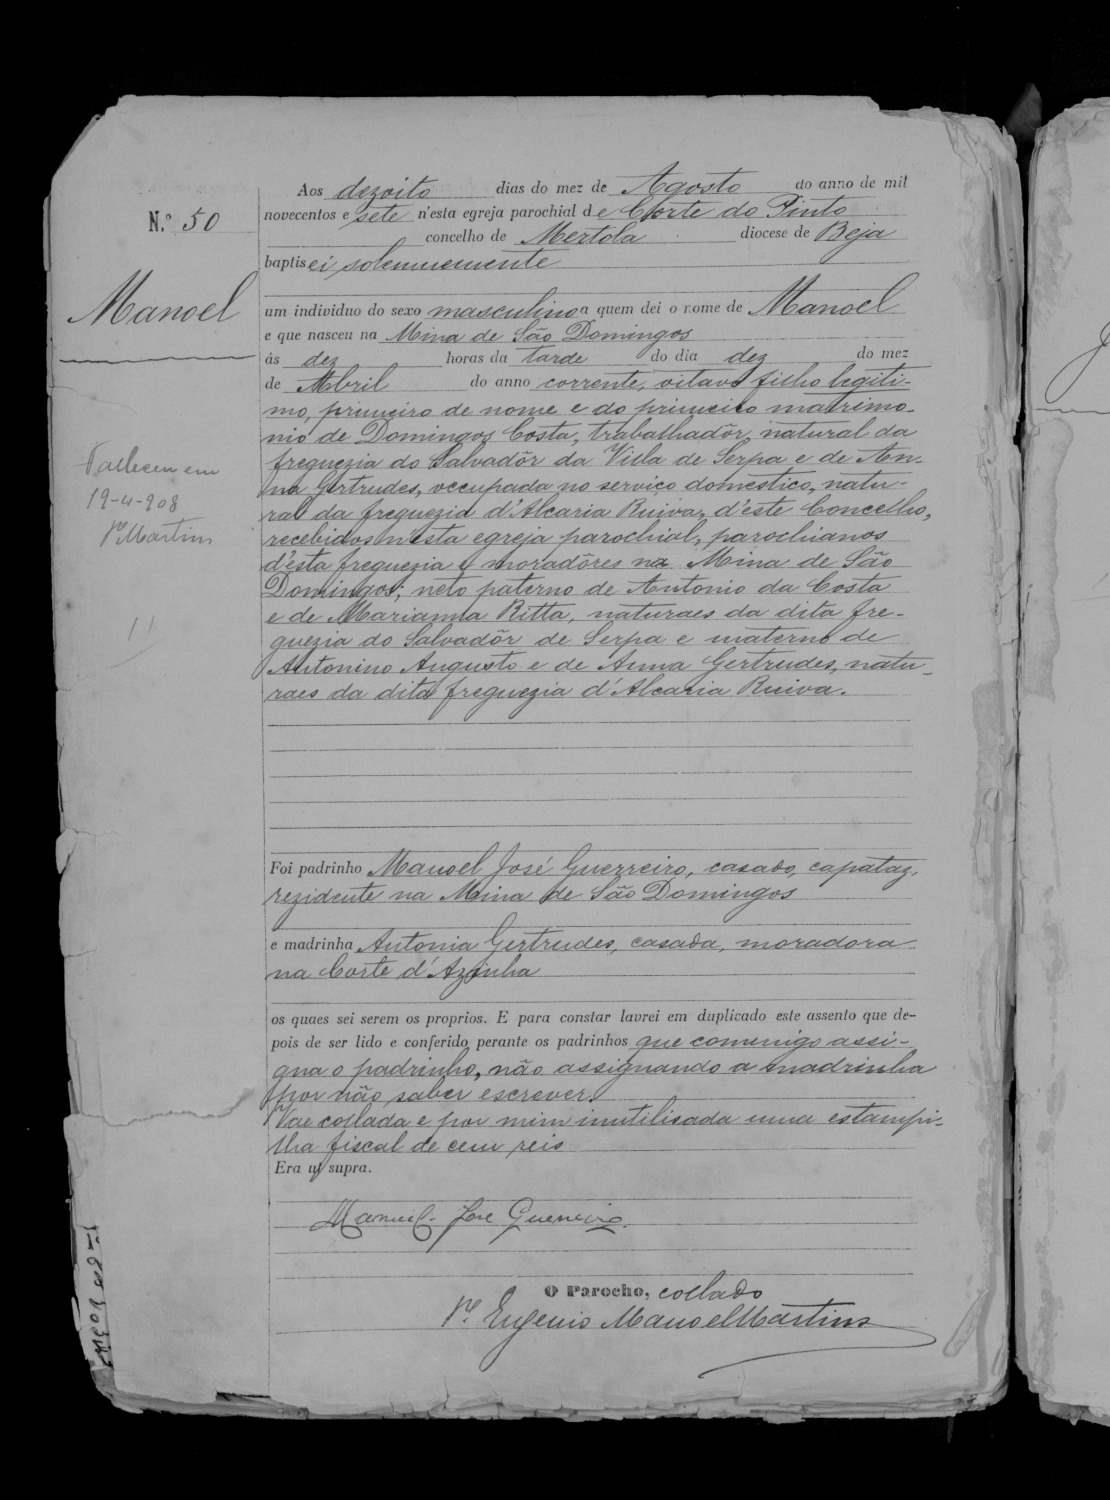 Aos dezoito dias do mez de Agosto do anno de mil
Nº 50
novecentos e sete n'esta egreja parochial de Corte do Pinto
concelho de Mertola diocese de Beja
baptisei solemnemente
Manoel
um individuo do sexo masculino a quem dei o nome de Manoel
e que nasceu na Mina de São Domingos
ás dez horas da tarde do dia dez do mez
de Abril do anno corrente, oitavo filho legiti-
mo, primeiro de nome e do primeiro matrimo-
nio de Domingos Costa, trabalhadôr, natural da
freguezia do Salvadôr da Villa de Serpa e de An-
na Gertrudes, occupada no serviço domestico, natu-
ral da freguezia d'Alcaria Ruiva, d'este Concelho,
recebidos n'esta egreja parochial, parochianos
d'ésta freguezia e moradôres na Mina de São
Domingos; neto paterno de Antonio da Costa
e de Marianna Ritta, naturaes da dita fre-
guezia do Salvadôr de Serpa e materno de
Antonino Augusto e de Anna Gertrudes, natu-
raes da dita freguezia d'Alcaria Ruiva.
Falleceu em
19-4-908
Pe. Martins
Foi padrinho Manoel José Guerreiro, casado, capataz,
rezidente na Mina de São Domingos
e madrinha Antonia Gertrudes, casada, moradora
na Corte d'Azinha
os quaes sei serem os proprios. E para constar lavrei em duplicado este assento que de-
pois de ser lido e conferido perante os padrinhos que comenigo assi-
gna o padrinho, não assignando a madrinha
por não saber escrever.
Vae collada e por mim inutilisada uma estampi-
lha fiscal de cem reis
Era ut supra.
Manuel José Guerreiro.
O Parocho, collado
Pe. Eugenio Manoel Martins